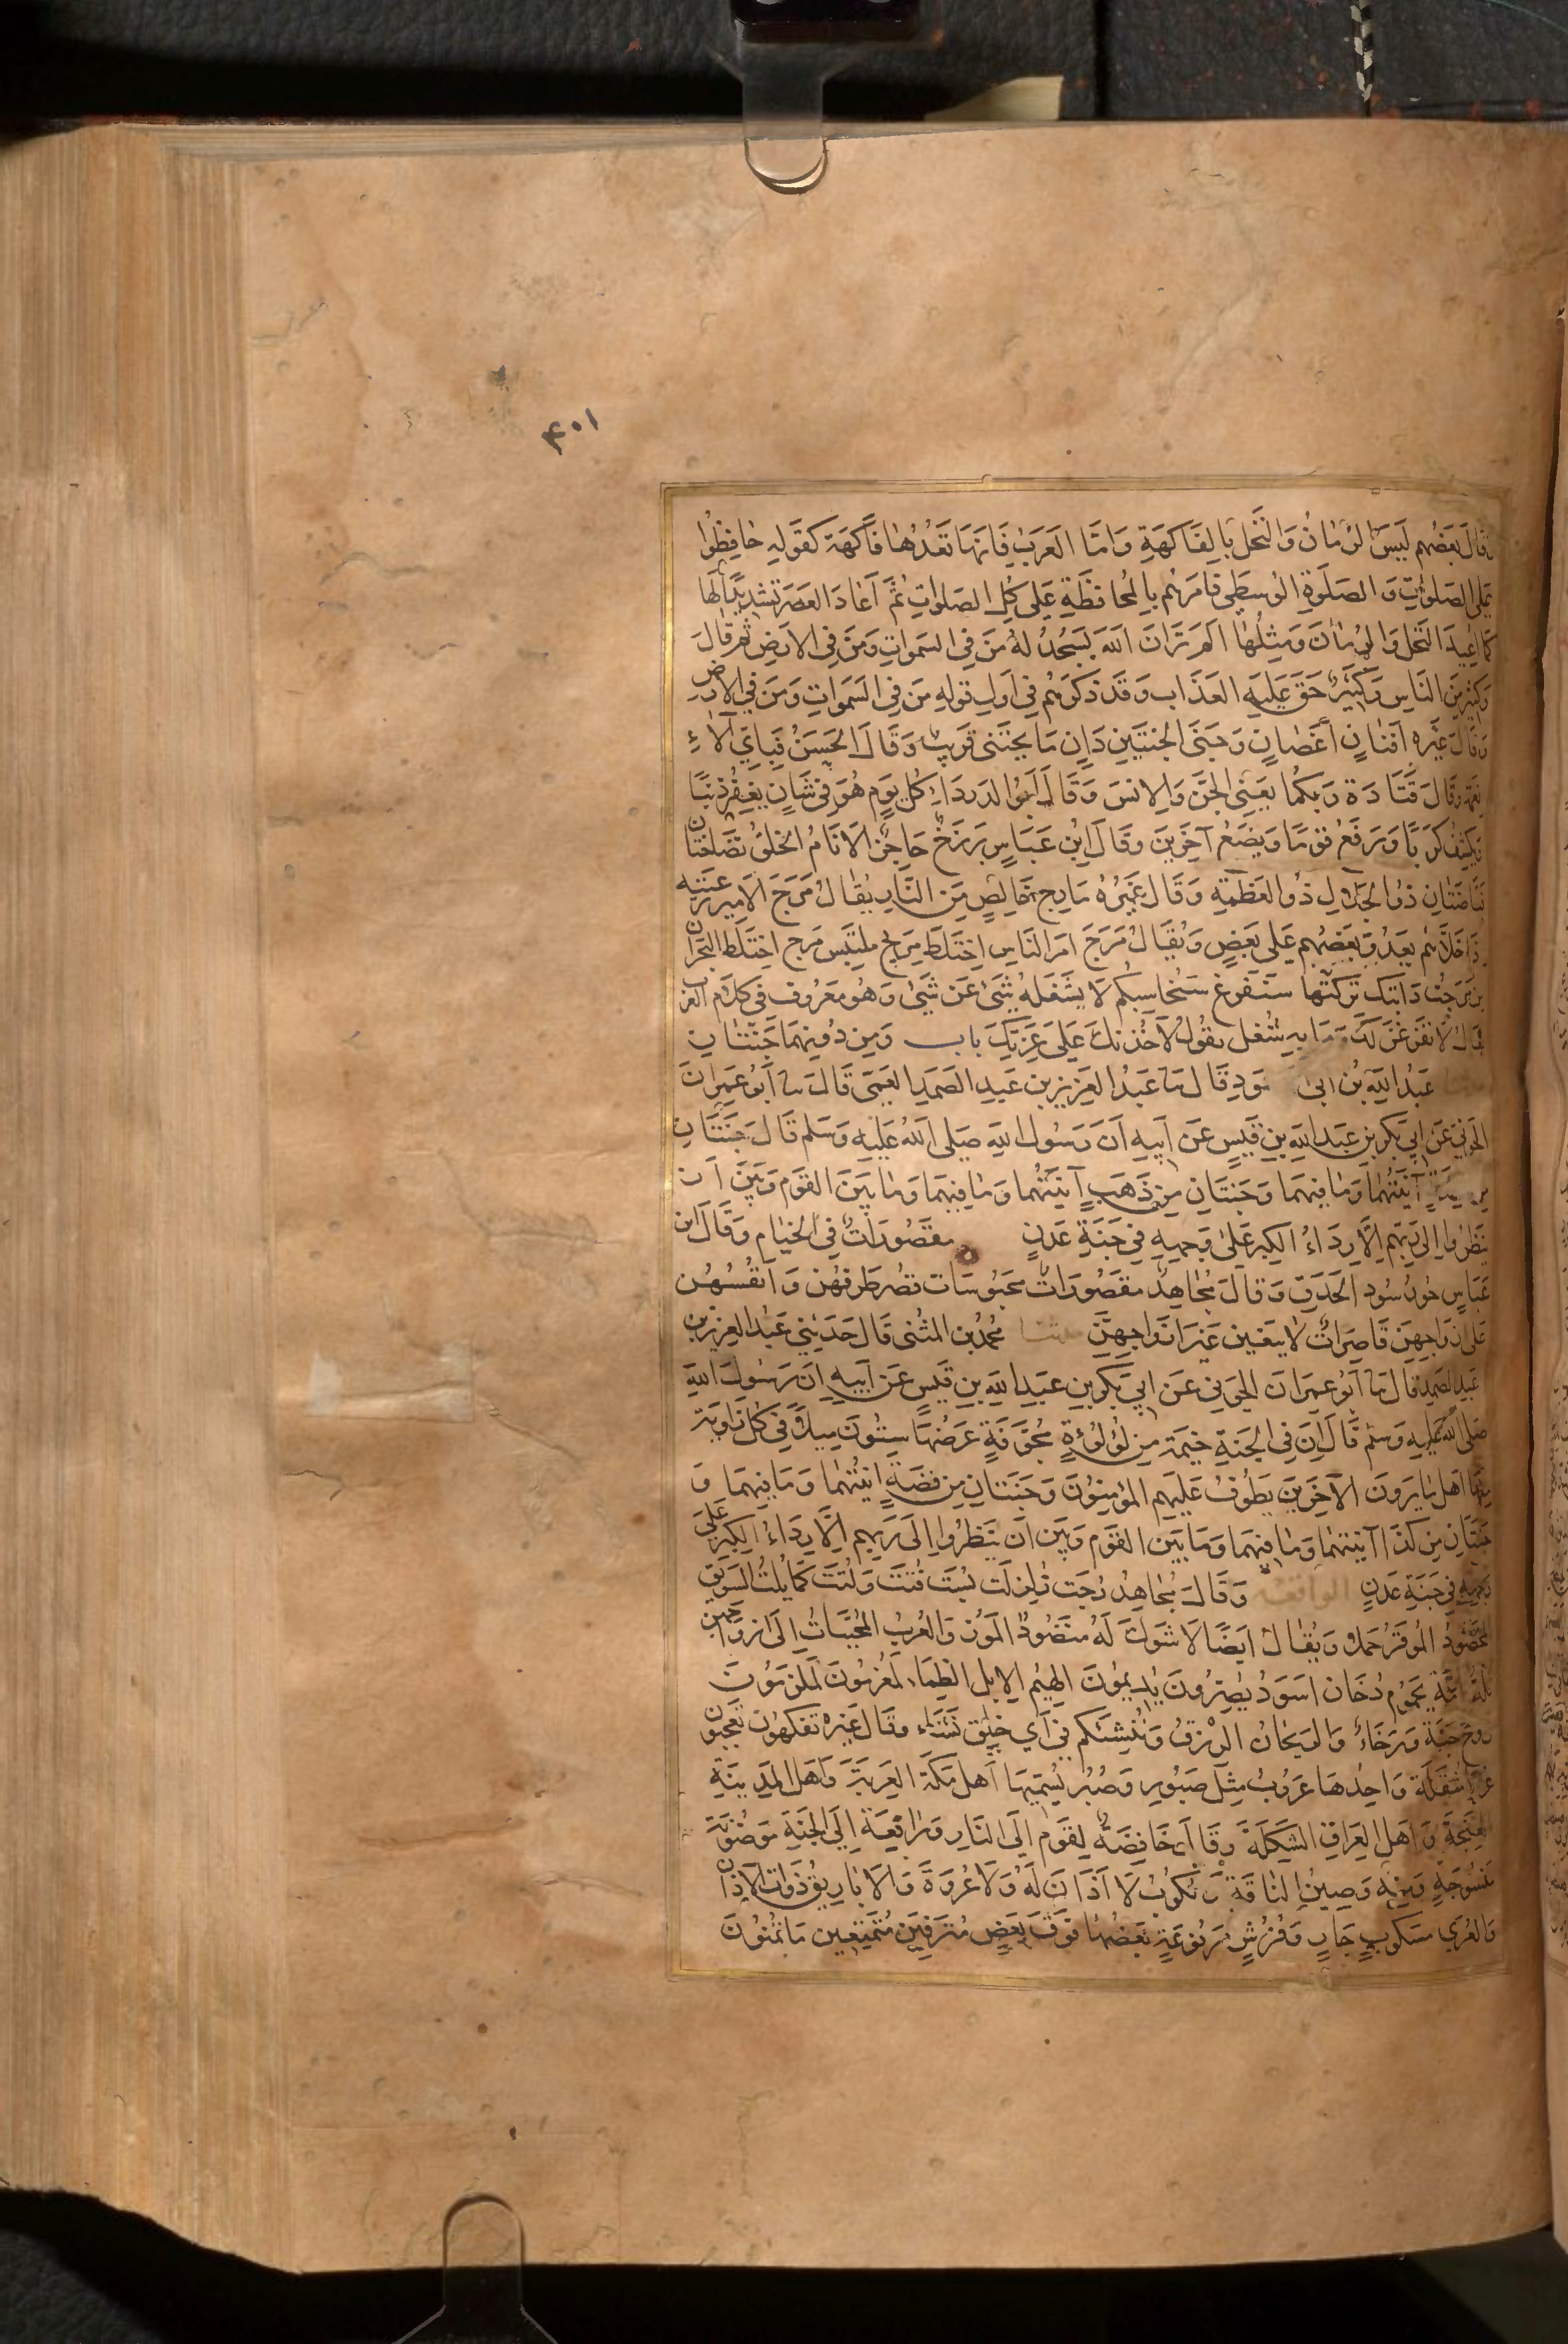 ۴۰۱
قال بعضهم ليس الرمان والنخل بالفاكهة واما العرب فانها تعدها فاكهة كقوله حافظوا
على الصلوات والصلوة الوسطى فامرهم بالمحافظة على كل الصلوات ثم اعاد العصر تشديدا لها
كما اعيد النخل والرمان ومثلها الم تر ان الله يسجد له من في السموات ومن في الارض ثم قال
وكثير من الناس وكثير حق عليه العذاب وقد ذكرهم في اول قوله من في السموات ومن في الارض
وقال غيره افنان اغصان وجنى الجنتين دان ما يجتنى قريب وقال الحسن فباي آلاء
نعمه وقال قتادة ربكما يعني الجن والانس وقال ابو الدرداء كل يوم هو في شان يغفر ذنبا
ويكشف كربا ويرفع قوما ويضع آخرين وقال ابن عباس برزخ حاجز الانام الخلق نضاختان
فياضتان ذو الجلال ذو العظمة وقال غيره مارج خالص من النار يقال مرج الامير رعيته
اذا خلاهم يعدو بعضهم على بعض ويقال مرج امر الناس اختلط مريج ملتبس مرج اختلط البحران
من مرجت دابتك تركتها سنفرغ سنحاسبكم لا يشغله شئ عن شئ وهو معروف في كلام العرب
يقال لاتفرغن لك وما به شغل يقول لآخذنك على غرتك باب ومن دونهما جنتان
عبد الله بن ابي سود قال نا عبد العزيز بن عبد الصمد العمي قال نا ابو عمران
الجوني عن ابي بكر بن عبد الله بن قيس عن ابيه ان رسول الله صلى الله عليه وسلم قال جنتان
من فضة آنيتهما وما فيهما وجنتان من ذهب آنيتهما وما فيهما وما بين القوم وبين ان
ينظروا الى ربهم الا رداء الكبر على وجهه في جنة عدن مقصورات في الخيام وقال ابن
عباس حور سود الحدق وقال مجاهد مقصورات محبوسات قصر طرفهن وانفسهن
على ازواجهن قاصرات لا يبغين غير ازواجهن حدثنا محمد بن المثنى قال حدثني عبد العزيز بن
عبد الصمد قال نا ابو عمران الجوني عن ابي بكر بن عبد الله بن قيس عن ابيه ان رسول الله
صلى الله عليه وسلم قال ان في الجنة خيمة من لؤلؤة مجوفة عرضها ستون ميلا في كل زاوية
منها اهل ما يرون الآخرين يطوف عليهم المؤمنون وجنتان من فضة انيتهما وما فيهما و
جنتان من كذا آنيتهما وما فيهما وما بين القوم وبين ان ينظروا الى ربهم الا رداء الكبر على
وجهه في جنة عدن الواقعة وقال مجاهد رجت زلزلت بست فتت ولتت كما يلت السويق
المخضود الموقر حملا ويقال ايضا لا شوك له منضود الموز والعرب المحببات الى ازواجهن
ثلة امة يحموم دخان اسود يصرون يديمون الهيم الابل الظماء لمغرمون لملزمون
روح جنة ورخاء والريحان الرزق وننشئكم في اي خلق نشاء وقال غيره تفكهون تعجبون
عربا مثقلة واحدها عروب مثل صبور وصبر يسميها اهل مكة العربة واهل المدينة
الغنجة واهل العراق الشكلة وقال خافضة لقوم الى النار ورافعة الى الجنة موضونة
منسوجة ومنه وضين الناقة والكوب لا آذان له ولا عروة والاباريق ذوات الآذان
والعرى مسكوب جار وفرش مرفوعة بعضها فوق بعض مترفين متمتعين ما تمنون